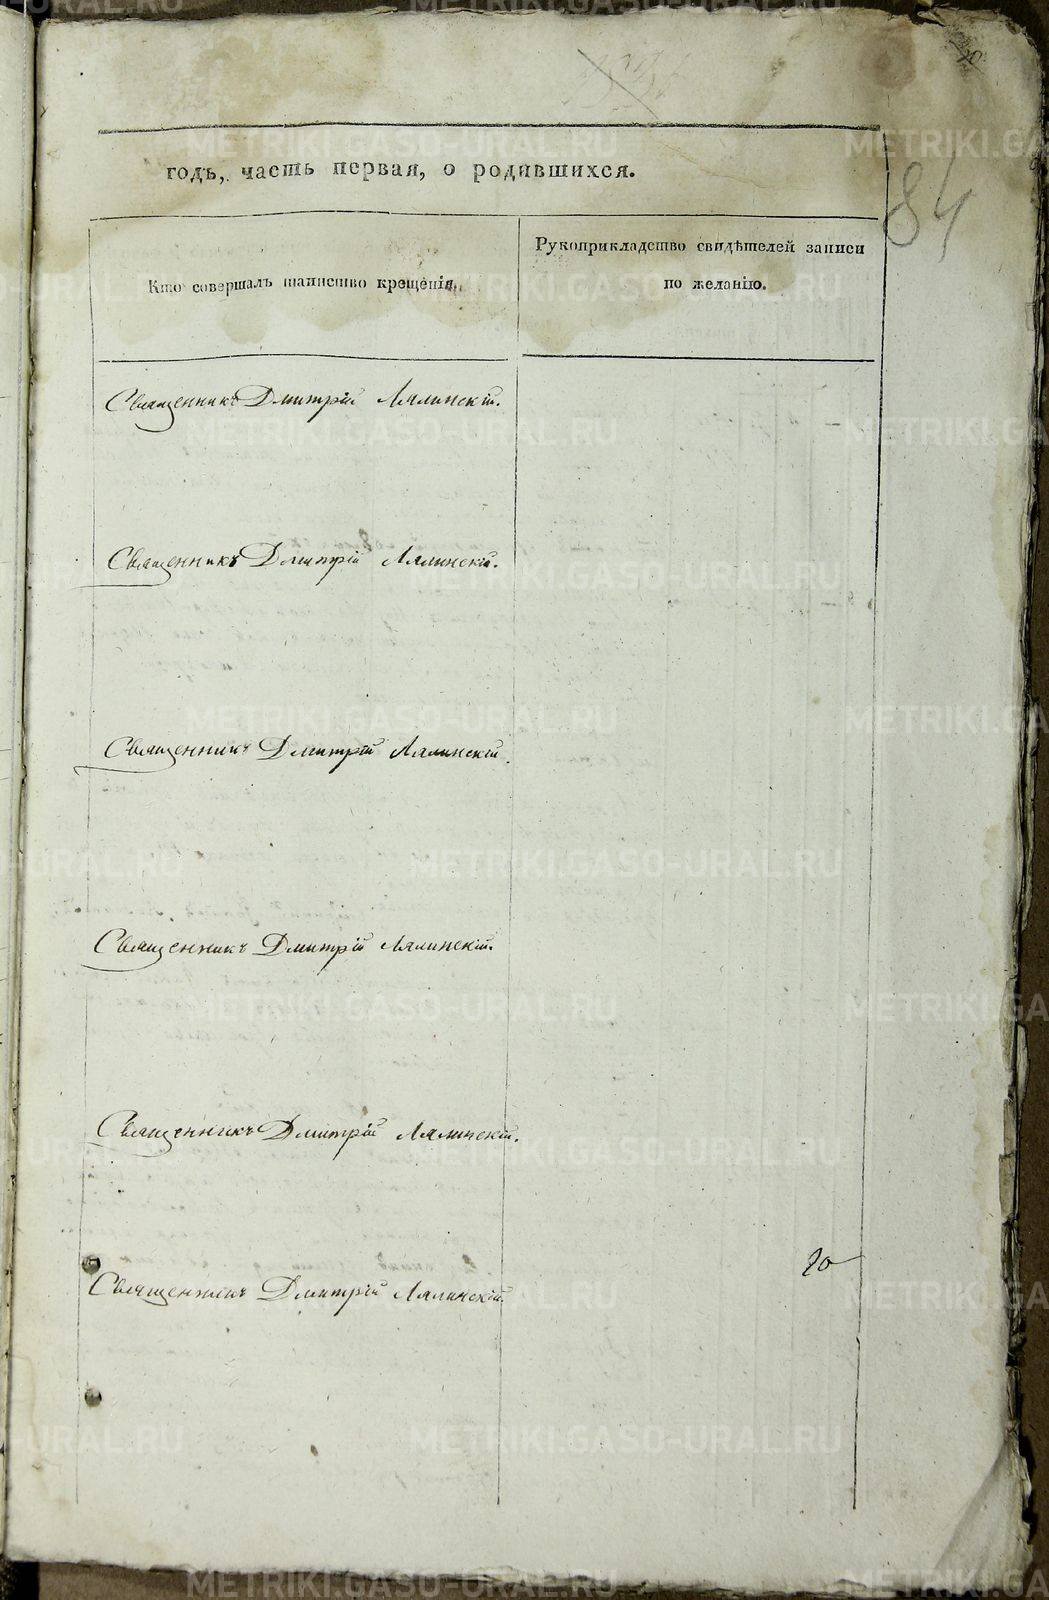 годъ, часть первая, о родившихся.
84
Кто совершалъ таинство крещенія.
Рукоприкладство свидѣтелей записи
по желанію.
Священникъ Дмитрій Лялинскій.
Священникъ Дмитрій Лялинскій.
Священникъ Дмитрій Лялинскій.
Священникъ Дмитрій Лялинскій.
Священникъ Дмитрій Лялинскій.
20
Священникъ Дмитрій Лялинскій.
METRIKI.GASO-URAL.RU